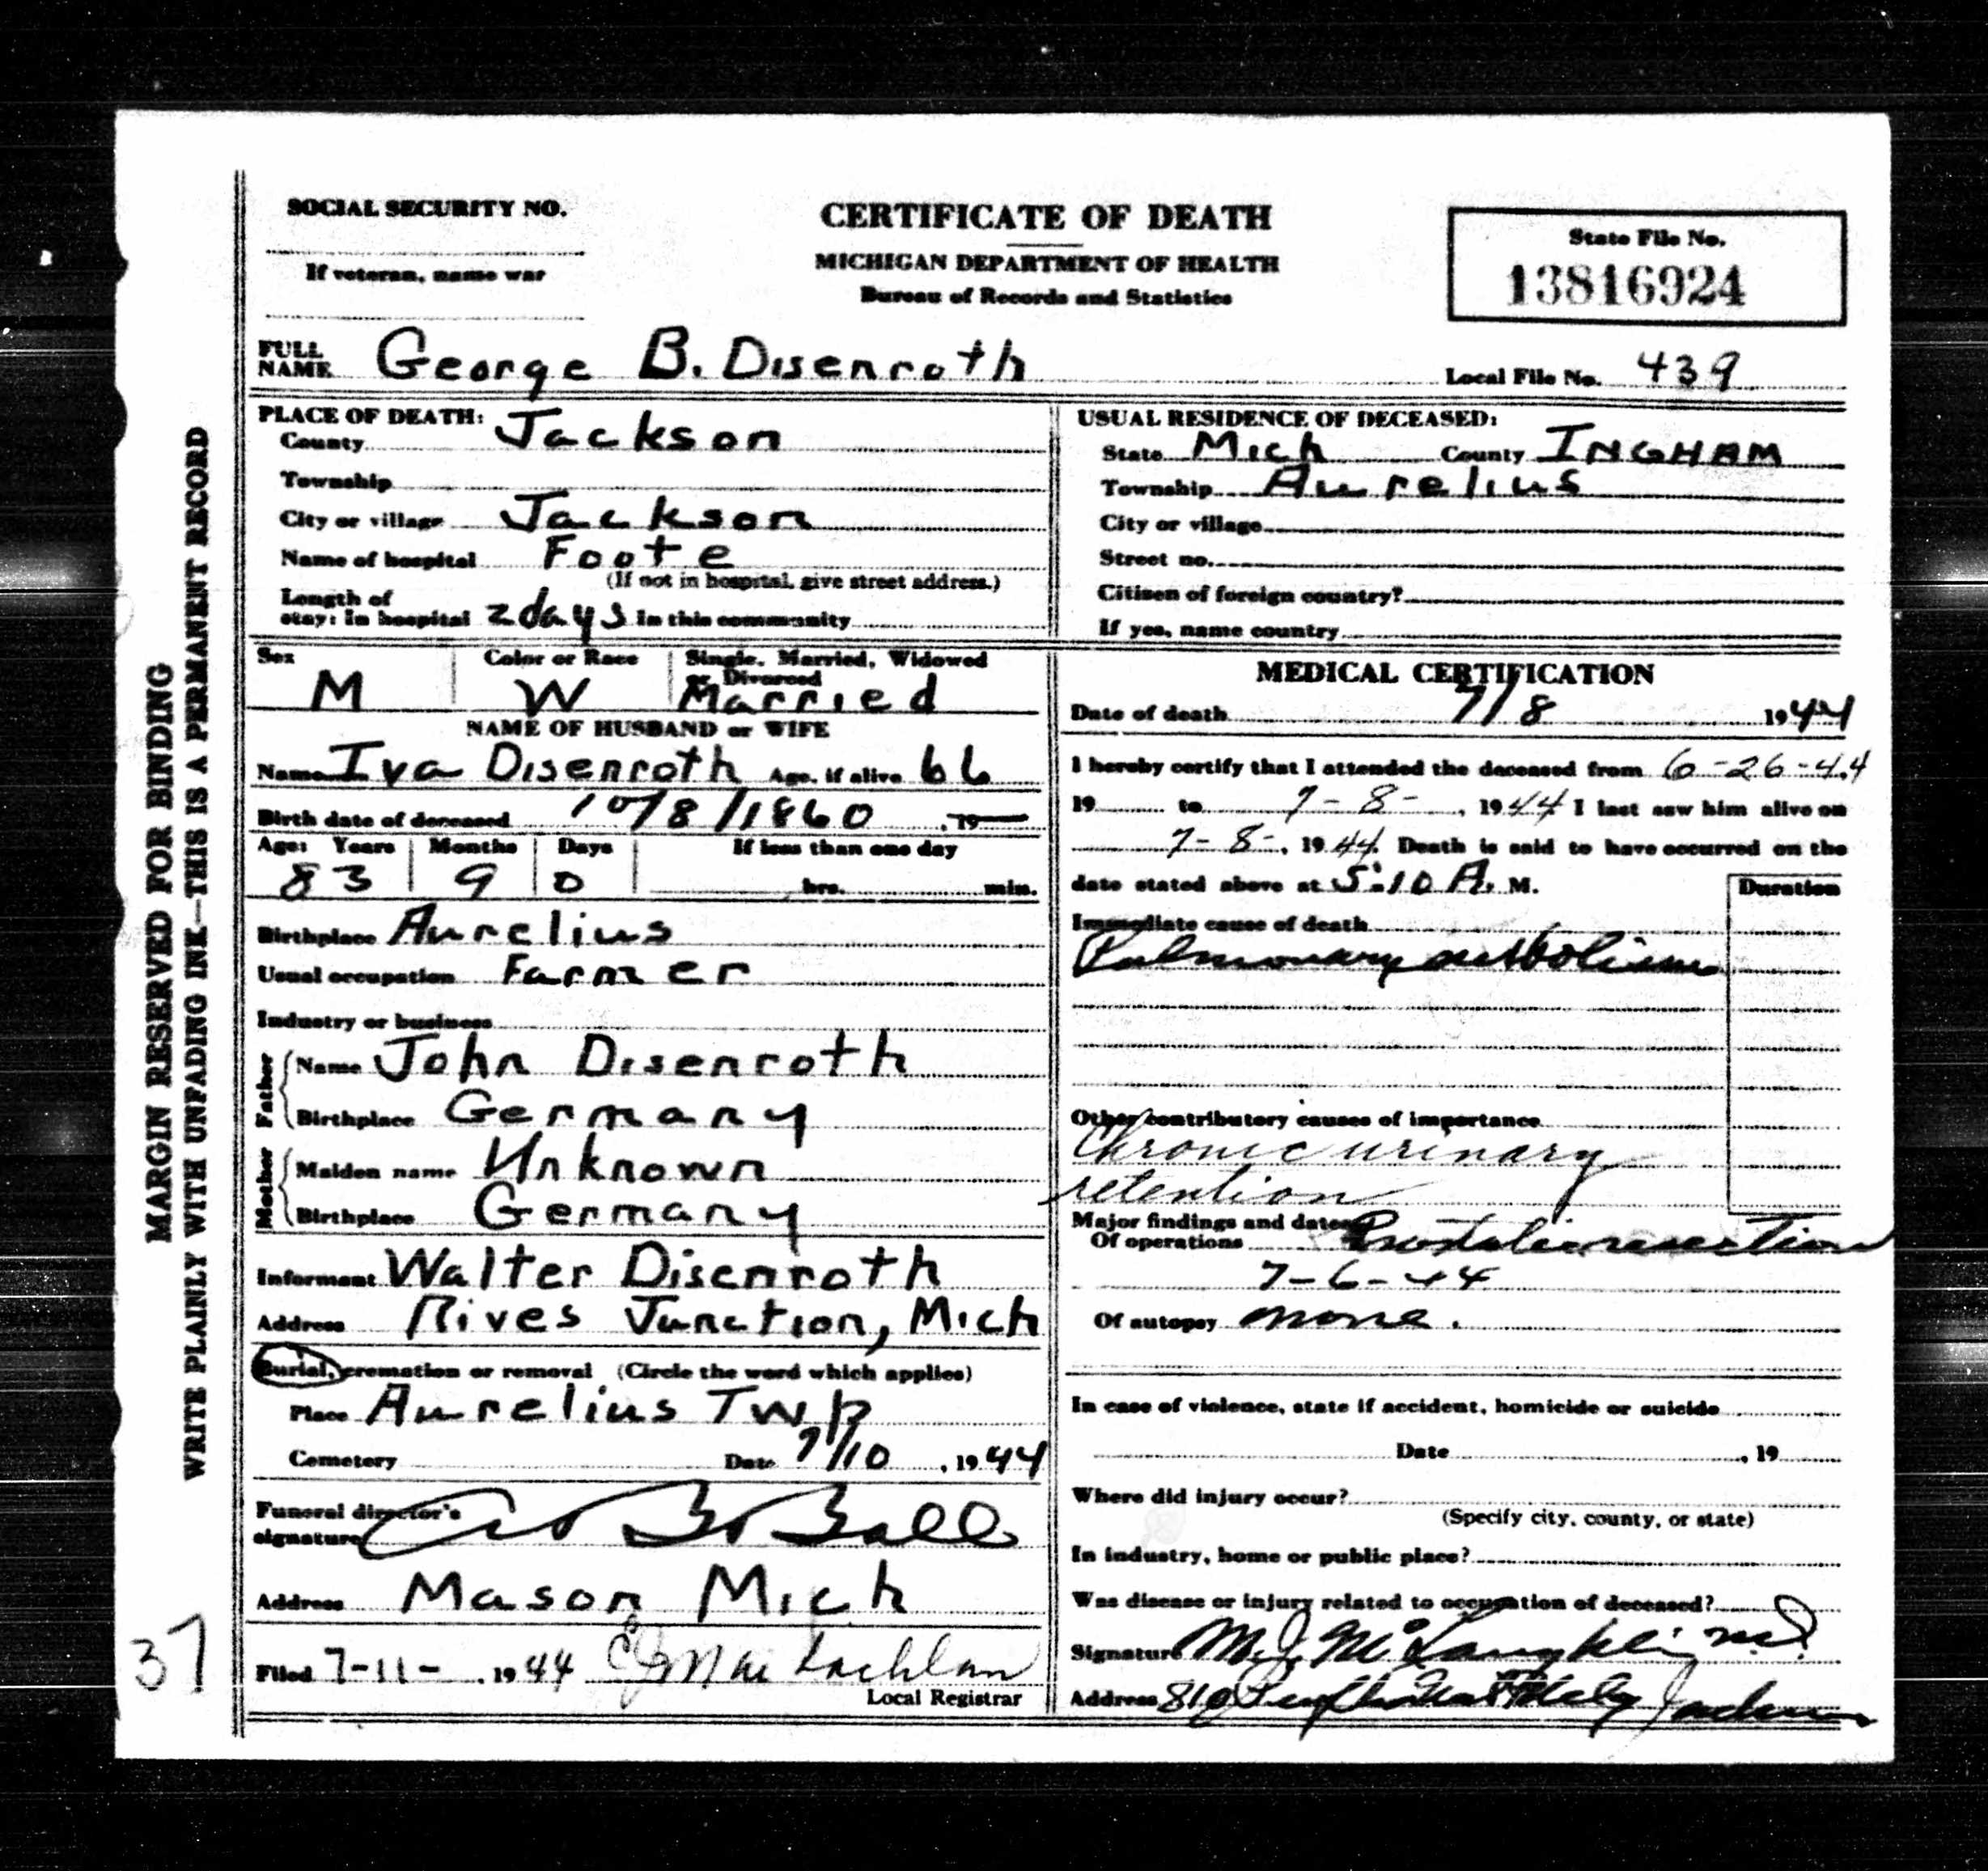 MARGIN RESERVED FOR BINDING
WRITE PLAINLY WITH UNFADING INK—THIS IS A PERMANENT RECORD
37
SOCIAL SECURITY NO.
If veteran, name war
CERTIFICATE OF DEATH
MICHIGAN DEPARTMENT OF HEALTH
Bureau of Records and Statistics
State File No.
13816924
FULL NAME George B. Disenroth
Local File No. 439
PLACE OF DEATH:
County Jackson
Township
City or village Jackson
Name of hospital Foote
(If not in hospital, give street address.)
Length of
stay: In hospital 2 days In this community
USUAL RESIDENCE OF DECEASED:
State Mich County INGHAM
Township Aurelius
City or village
Street no.
Citizen of foreign country?
If yes, name country
Sex Color or Race Single, Married, Widowed
or Divorced
M W Married
NAME OF HUSBAND or WIFE
Name Iva Disenroth Age, if alive 66
Birth date of deceased 10/8/1860, 19
Age: Years Months Days If less than one day
83 9 0 hrs. min.
Birthplace Aurelius
Usual occupation Farmer
Industry or business
Father
Name John Disenroth
Birthplace Germany
Mother
Maiden name Unknown
Birthplace Germany
Informant Walter Disenroth
Address Rives Junction, Mich
Burial, cremation or removal (Circle the word which applies)
Place Aurelius Twp
Cemetery Date 7/10, 1944
Funeral director's
signature Ball
Address Mason Mich
Filed 7-11-, 1944 MacLachlan
Local Registrar
MEDICAL CERTIFICATION
Date of death 7/8 1944
I hereby certify that I attended the deceased from 6-26-44
19 to 7-8-, 1944 I last saw him alive on
7-8-, 1944. Death is said to have occurred on the
date stated above at 5:10 A. M.
Duration
Immediate cause of death
Pulmonary embolism
Other contributory causes of importance
Chronic urinary
retention
Major findings and dates
Of operations Prostatic resection
7-6-44
Of autopsy none.
In case of violence, state if accident, homicide or suicide
Date, 19
Where did injury occur?
(Specify city, county, or state)
In industry, home or public place?
Was disease or injury related to occupation of deceased?
Signature M. J. McLaughlin M.D.
Address 810 Jackson